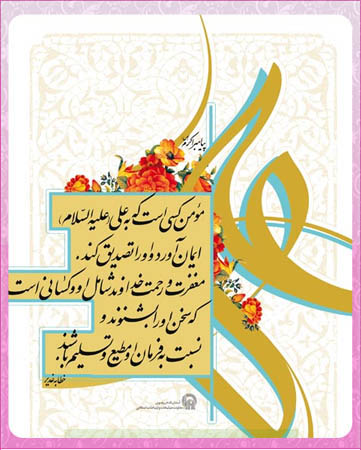 پیامبر اکرم
مؤمن کسی است که به علی (علیه السّلام)
ایمان آورد و او را تصدیق کند.
مغفرت و رحمت خداوند شامل او و کسانی است
که سخن او را بشنوند و
نسبت به فرمان او مطیع و تسلیم باشند.
خطابه غدیر
آستان قدس رضوی